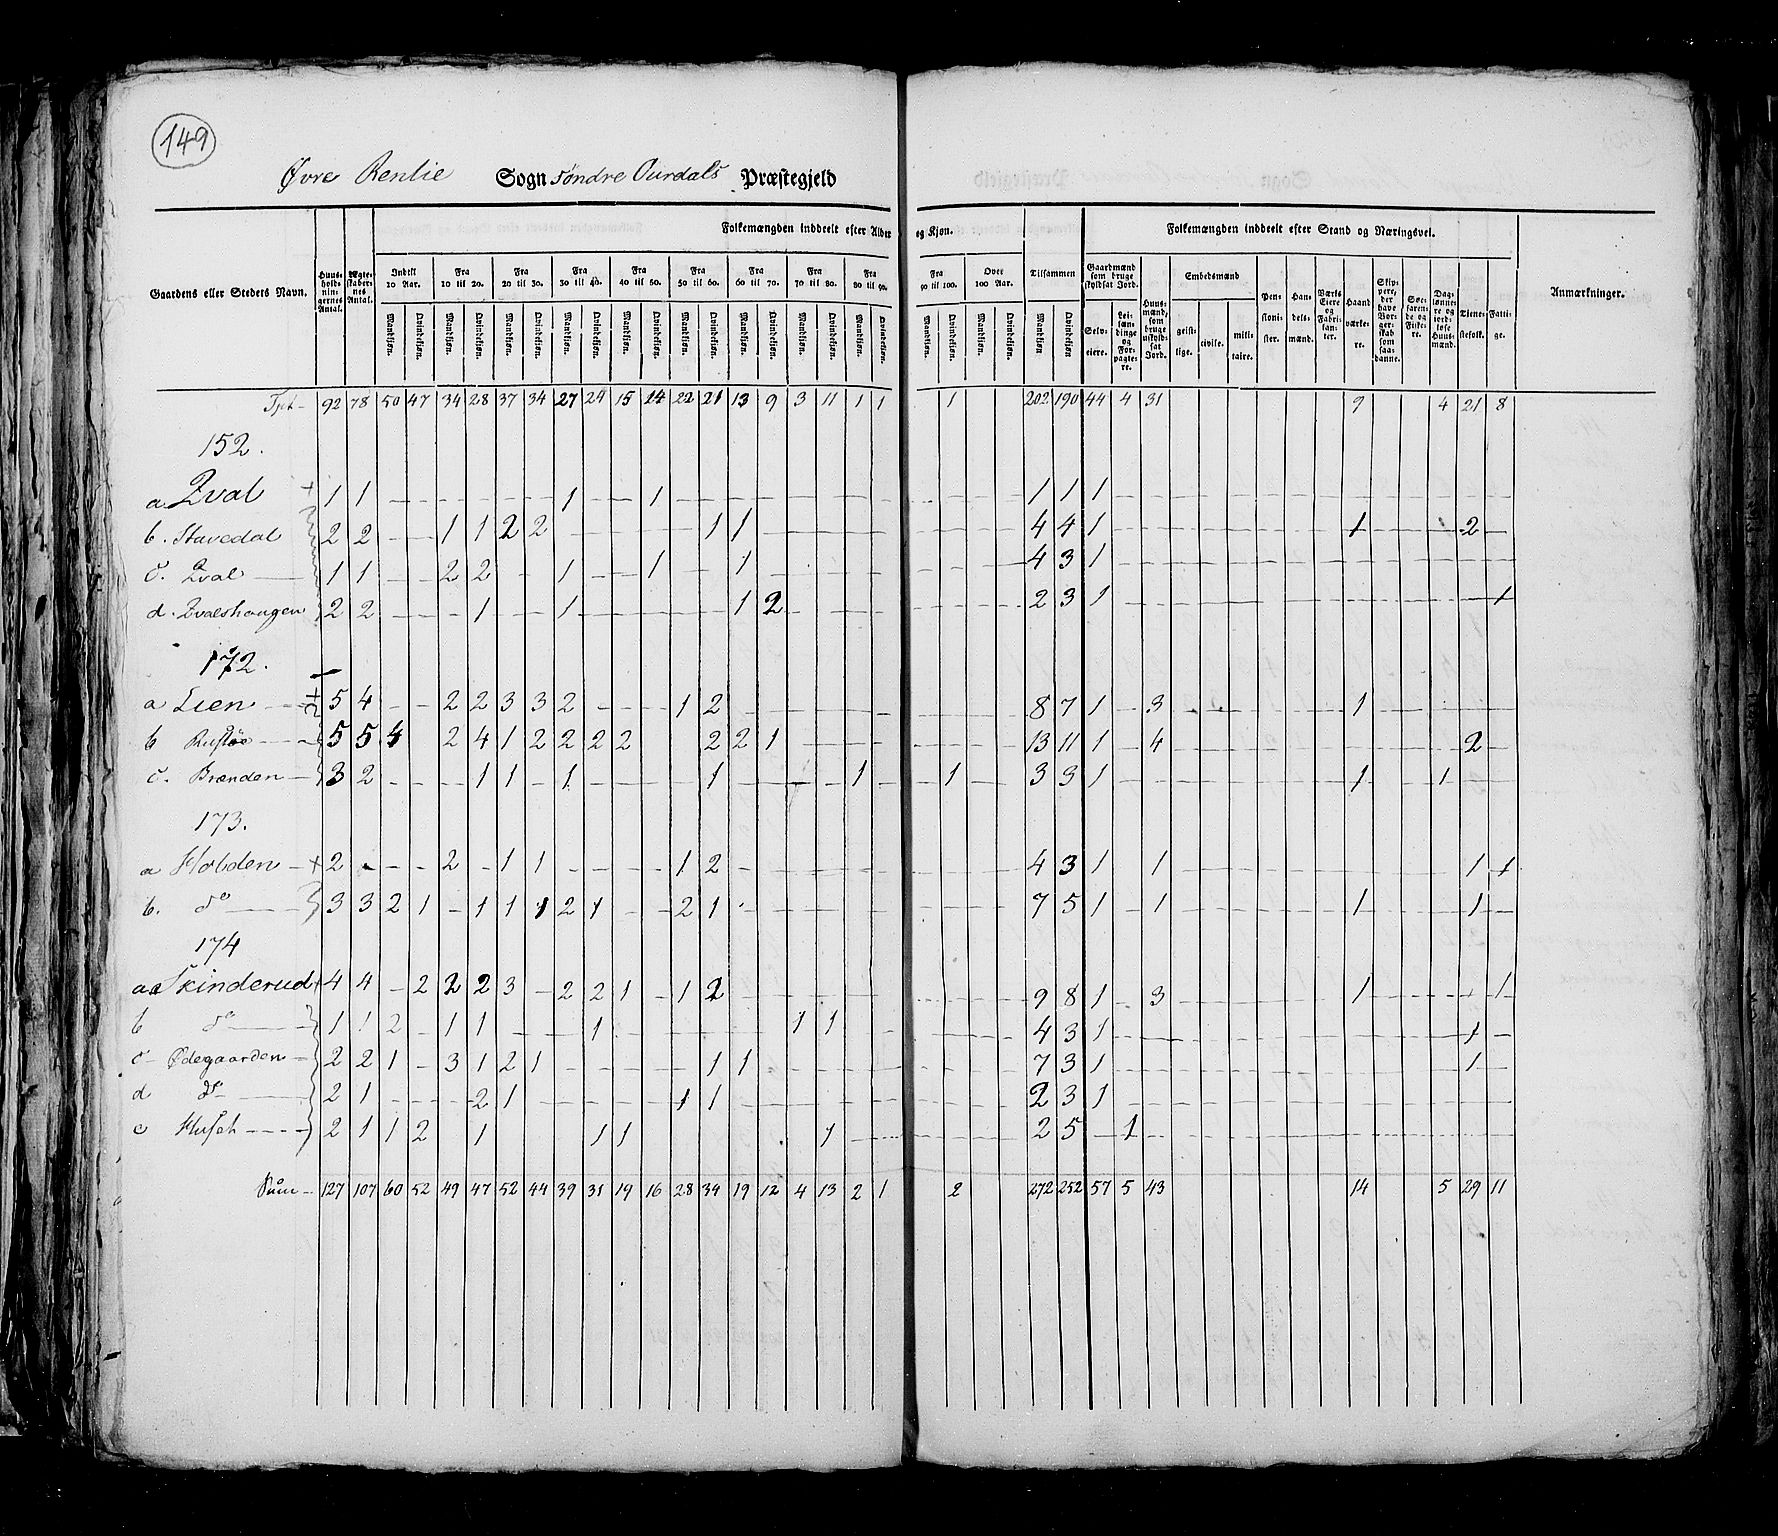 149
Øvre Renlie Sogn søndre Ourdals Præstegjeld
Folkemængden inddeelt efter Alder og Kjøn. Folkemængden inddeelt efter Stand og Næringsvei.
Gaardens eller Stedets Navn. Huusholdningernes Antal. Ægteskabernes Antal. Indtil 10 Aar. Fra 10 til 20. Fra 20 til 30. Fra 30 til 40. Fra 40 til 50. Fra 50 til 60. Fra 60 til 70. Fra 70 til 80. Fra 80 til 90. Fra 90 til 100. Over 100 Aar. Tilsammen Gaardmænd som bruge skyldsat Jord. Huusmænd, som bruge uskyldsat Jord. Embedsmænd Pensionister. Handelsmænd. Værks Eiere og Fabrikanter. Haandværkere. Skippere, der have Borgerskab som saadanne. Søefarende og Fiskere. Daglønnere og jordløse Huusmænd. Tienestefolk. Fattige. Anmærkninger.
Mandkjøn. Qvindekjøn. Mandkjøn. Qvindekjøn. Mandkjøn. Qvindekjøn. Mandkjøn. Qvindekjøn. Mandkjøn. Qvindekjøn. Mandkjøn. Qvindekjøn. Mandkjøn. Qvindekjøn. Mandkjøn. Qvindekjøn. Mandkjøn. Qvindekjøn. Mandkjøn. Qvindekjøn. Mandkjøn. Qvindekjøn. Mandkjøn Qvindekjøn Selveiere. Leilændinge og Forpagtere. geistlige. civile. militaire.
Tpt- 92 78 50 47 34 28 37 34 27 24 15 14 22 21 13 9 3 11 1 1 1 202 190 44 4 31 9 4 21 8
152.
a Qval + 1 1 - - - - - - 1 - - 1 - - - - - - - - 1 1 1
b. Stavedal 2 2 - - 1 1 2 2 - - - - - 1 1 - - - - 4 4 1 1 2
c. Qval 1 1 - - 2 2 - - 1 - - 1 - - 1 - - - - 4 3 1
d. Qvalshougen 2 2 - - - 1 - - 1 - - - - - 1 2 - - - 2 3 1 1
172.
a Lien 5 4 - - 2 2 3 3 2 - - - 1 2 - - - - 8 7 1 - 3 1
b Rustøe 5 5 4 2 4 1 2 2 2 2 2 2 1 - - - - 13 11 1 - 4 2
c. Brænden 3 2 - - - 1 1 - 1 - - - - 1 - - - - 1 - - 1 3 3 1 1 1
173.
a Holden + 2 - - - 2 - 1 1 - - - - 1 2 - - - - 4 3 1 1 1 1
b. do 3 3 2 1 - 1 1 1 2 1 - - 2 1 - - - - 7 5 1 - 1 1 1
174
a Skinderud 4 4 - 2 2 2 3 - 2 2 1 - 1 2 - - - - 9 8 1 - 3 1 1
b do 1 1 2 - 1 1 - - - 1 - - - - - - 1 1 - - 4 3 1 1
c- Ødegaarden 2 2 1 - 3 1 2 1 - - - - - 1 1 - - - - 7 3 1 1
d do 2 1 - - - 2 1 - - - - - 1 1 - - - - 2 3 1
e Huset 2 1 1 2 - 1 - - - 1 1 - - - - - - 1 - - 2 5 - 1
Sum- 127 107 60 52 49 47 52 44 39 31 19 16 28 34 19 12 4 13 2 1 2 272 252 57 5 43 14 5 29 11